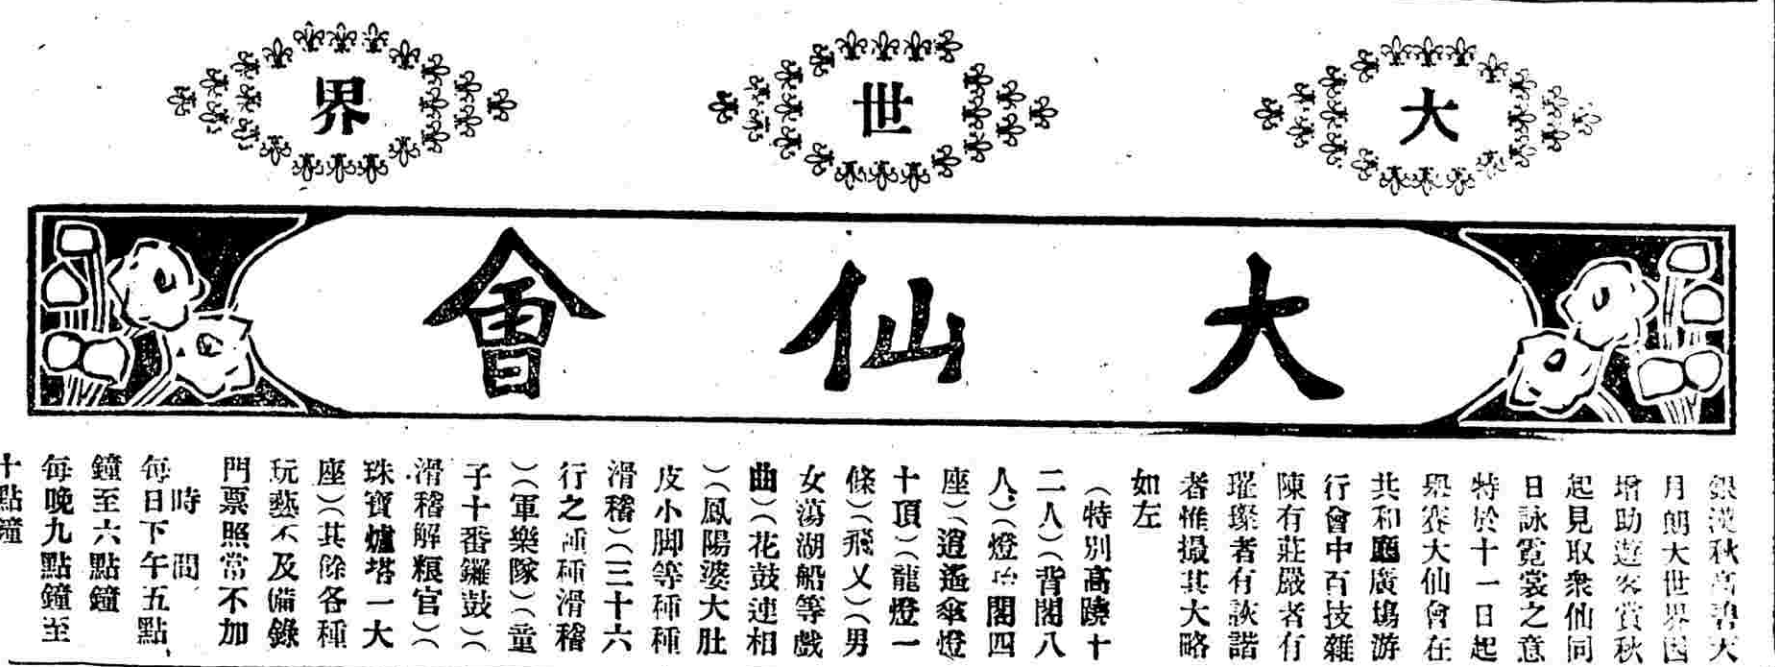 大世界
大仙會
銀漢秋高碧天
月朗大世界因
增助遊客賞秋
起見取衆仙同
日詠霓裳之意
特於十一日起
舉賽大仙會在
共和廳廣塲游
行會中百技雜
陳有莊嚴者有
璀璨者有詼諧
者惟撮其大略
如左
(特別高蹺十
二人)(背閣八
人)(燈抬閣四
座)(逍遙傘燈
十頂)(龍燈一
條)(飛叉)(男
女蕩湖船等戲
曲)(花鼓連相
)(鳳陽婆大肚
皮小脚等種種
滑稽)(三十六
行之種種滑稽
)(軍樂隊)(童
子十番鑼鼓)(
滑稽解粮官)(
珠寶爐塔一大
座)(其餘各種
玩藝不及備錄
門票照常不加
時間
每日下午五點
鐘至六點鐘
每晚九點鐘至
十點鐘